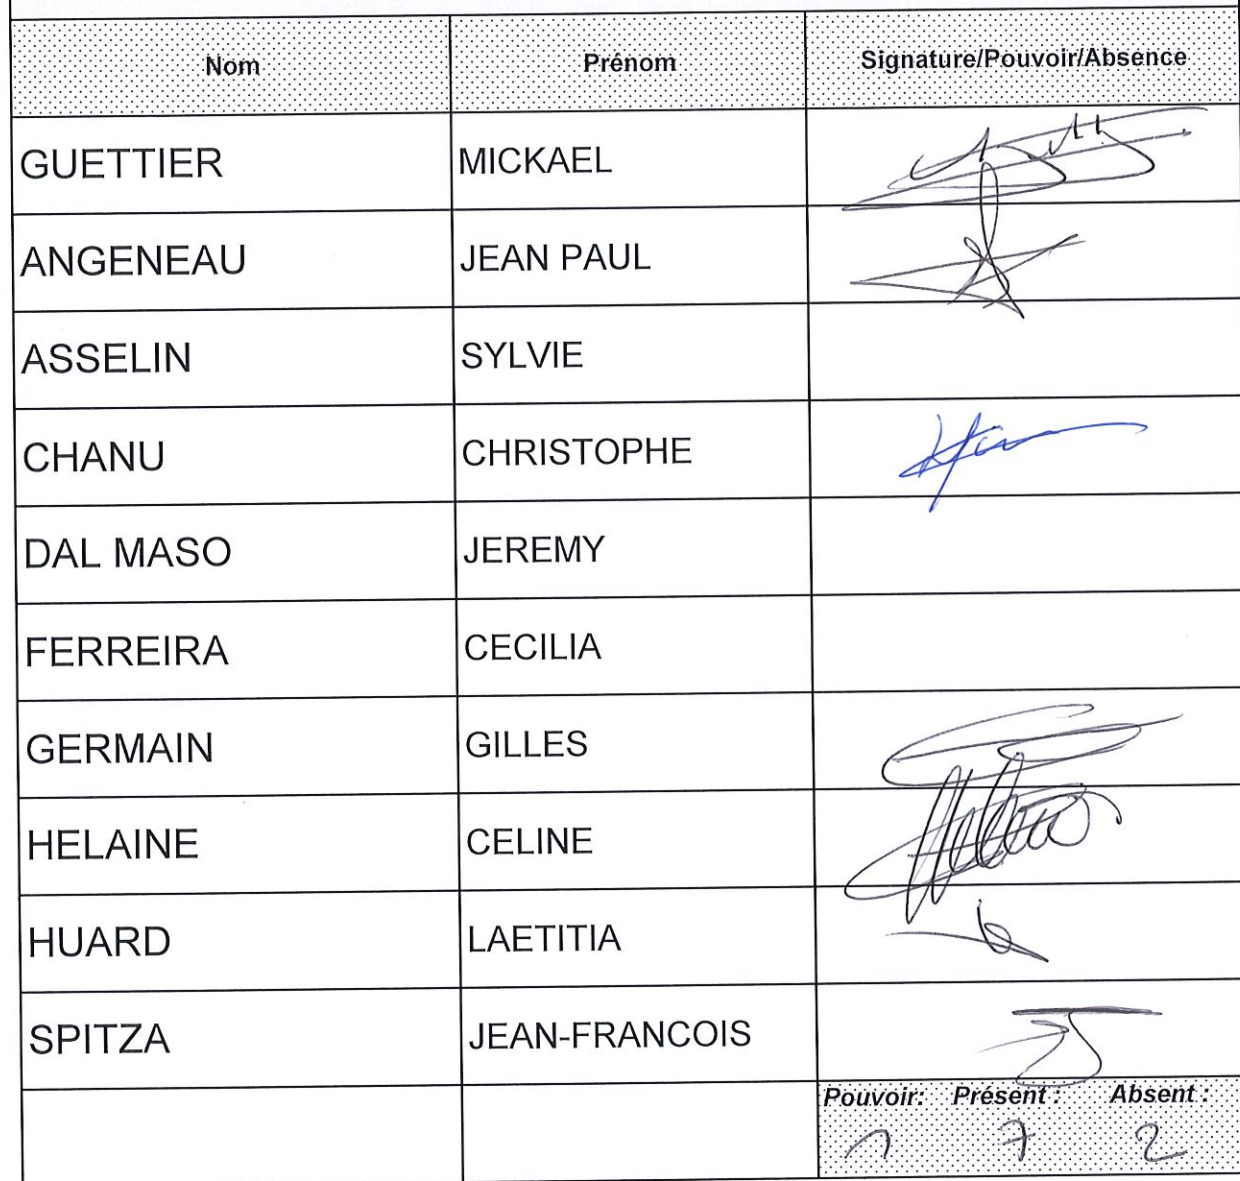 Nom Prénom Signature/Pouvoir/Absence
GUETTIER MICKAEL
ANGENEAU JEAN PAUL
ASSELIN SYLVIE
CHANU CHRISTOPHE
DAL MASO JEREMY
FERREIRA CECILIA
GERMAIN GILLES
HELAINE CELINE
HUARD LAETITIA
SPITZA JEAN-FRANCOIS
Pouvoir: Présent : Absent :
1 7 2